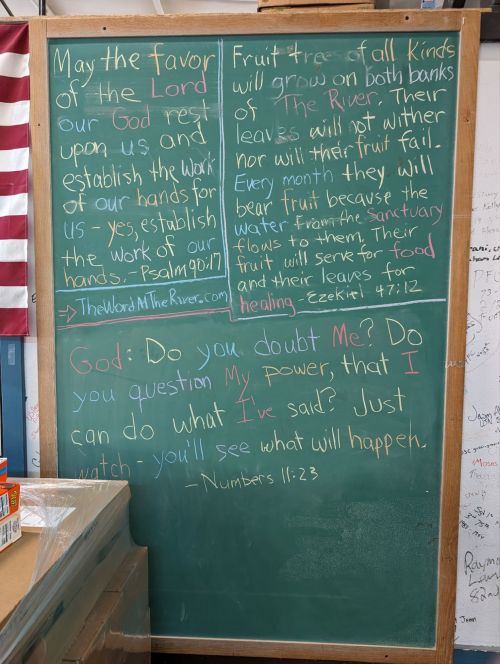 May the favor
of the Lord
our God rest
upon us and
establish the work
of our hands for
us - yes, establish
the work of our
hands. - Psalm 90:17
→ TheWordAtTheRiver.com
Fruit trees of all kinds
will grow on both banks
of The River. Their
leaves will not wither
nor will their fruit fail.
Every month they will
bear fruit because the
water from the sanctuary
flows to them. Their
fruit will serve for food
and their leaves for
healing - Ezekiel 47:12
God: Do you doubt Me? Do
you question My power, that I
can do what I've said? Just
watch - you'll see what will happen.
- Numbers 11:23